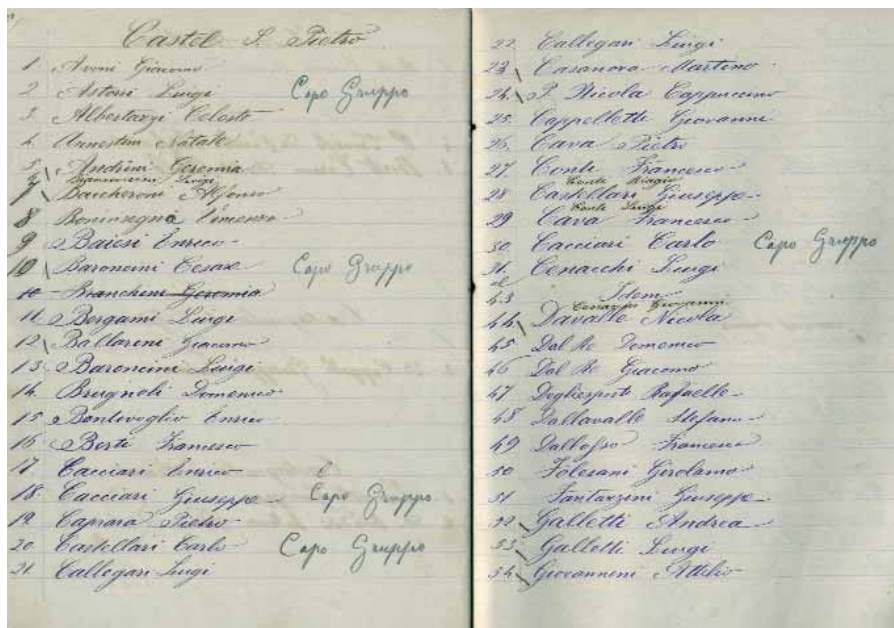 Castel S. Pietro
1 Avoni Giacomo
2 Astorri Luigi Capo Gruppo
3 Albertazzi Celeste
4 Natale
5 Andrini Geremia
Luigi
7 Baccheroni Alfonso
8 Bonivregna Vincenzo
9 Baiesi Enrico
10 Baroncini Cesare Capo Gruppo
10 Bianchini Geremia
11 Bergami Luigi
12 Ballarini Giacomo
13 Baroncini Luigi
14 Brugnoli Domenico
15 Bentivoglio Enrico
16 Berti Francesco
17 Cacciari Enrico
18 Cacciari Giuseppe Capo Gruppo
19 Caprara Pietro
20 Castellari Carlo Capo Gruppo
21 Callegari Luigi
22 Callegari Luigi
23 Casanova Martino
24 P. Nicola Cappuccino
25 Cappelletti Giovanni
26 Cava Pietro
27 Conti Francesco
Conti Biagio
28 Castellari Giuseppe
Conti Luigi
29 Cava Francesco
30 Cacciari Carlo Capo Gruppo
31 Cenacchi Luigi
al
43 Idem
Giovanni
44 Davalle Nicola
45 Dal Re Domenico
46 Dal Re Giacomo
47 Degliesposti Raffaello
48 Dallavalle Stefano
49 Dallosso Francesco
50 Folesani Girolamo
51 Fantazzini Giuseppe
52 Galletti Andrea
53 Galletti Luigi
54 Giovannini Attilio